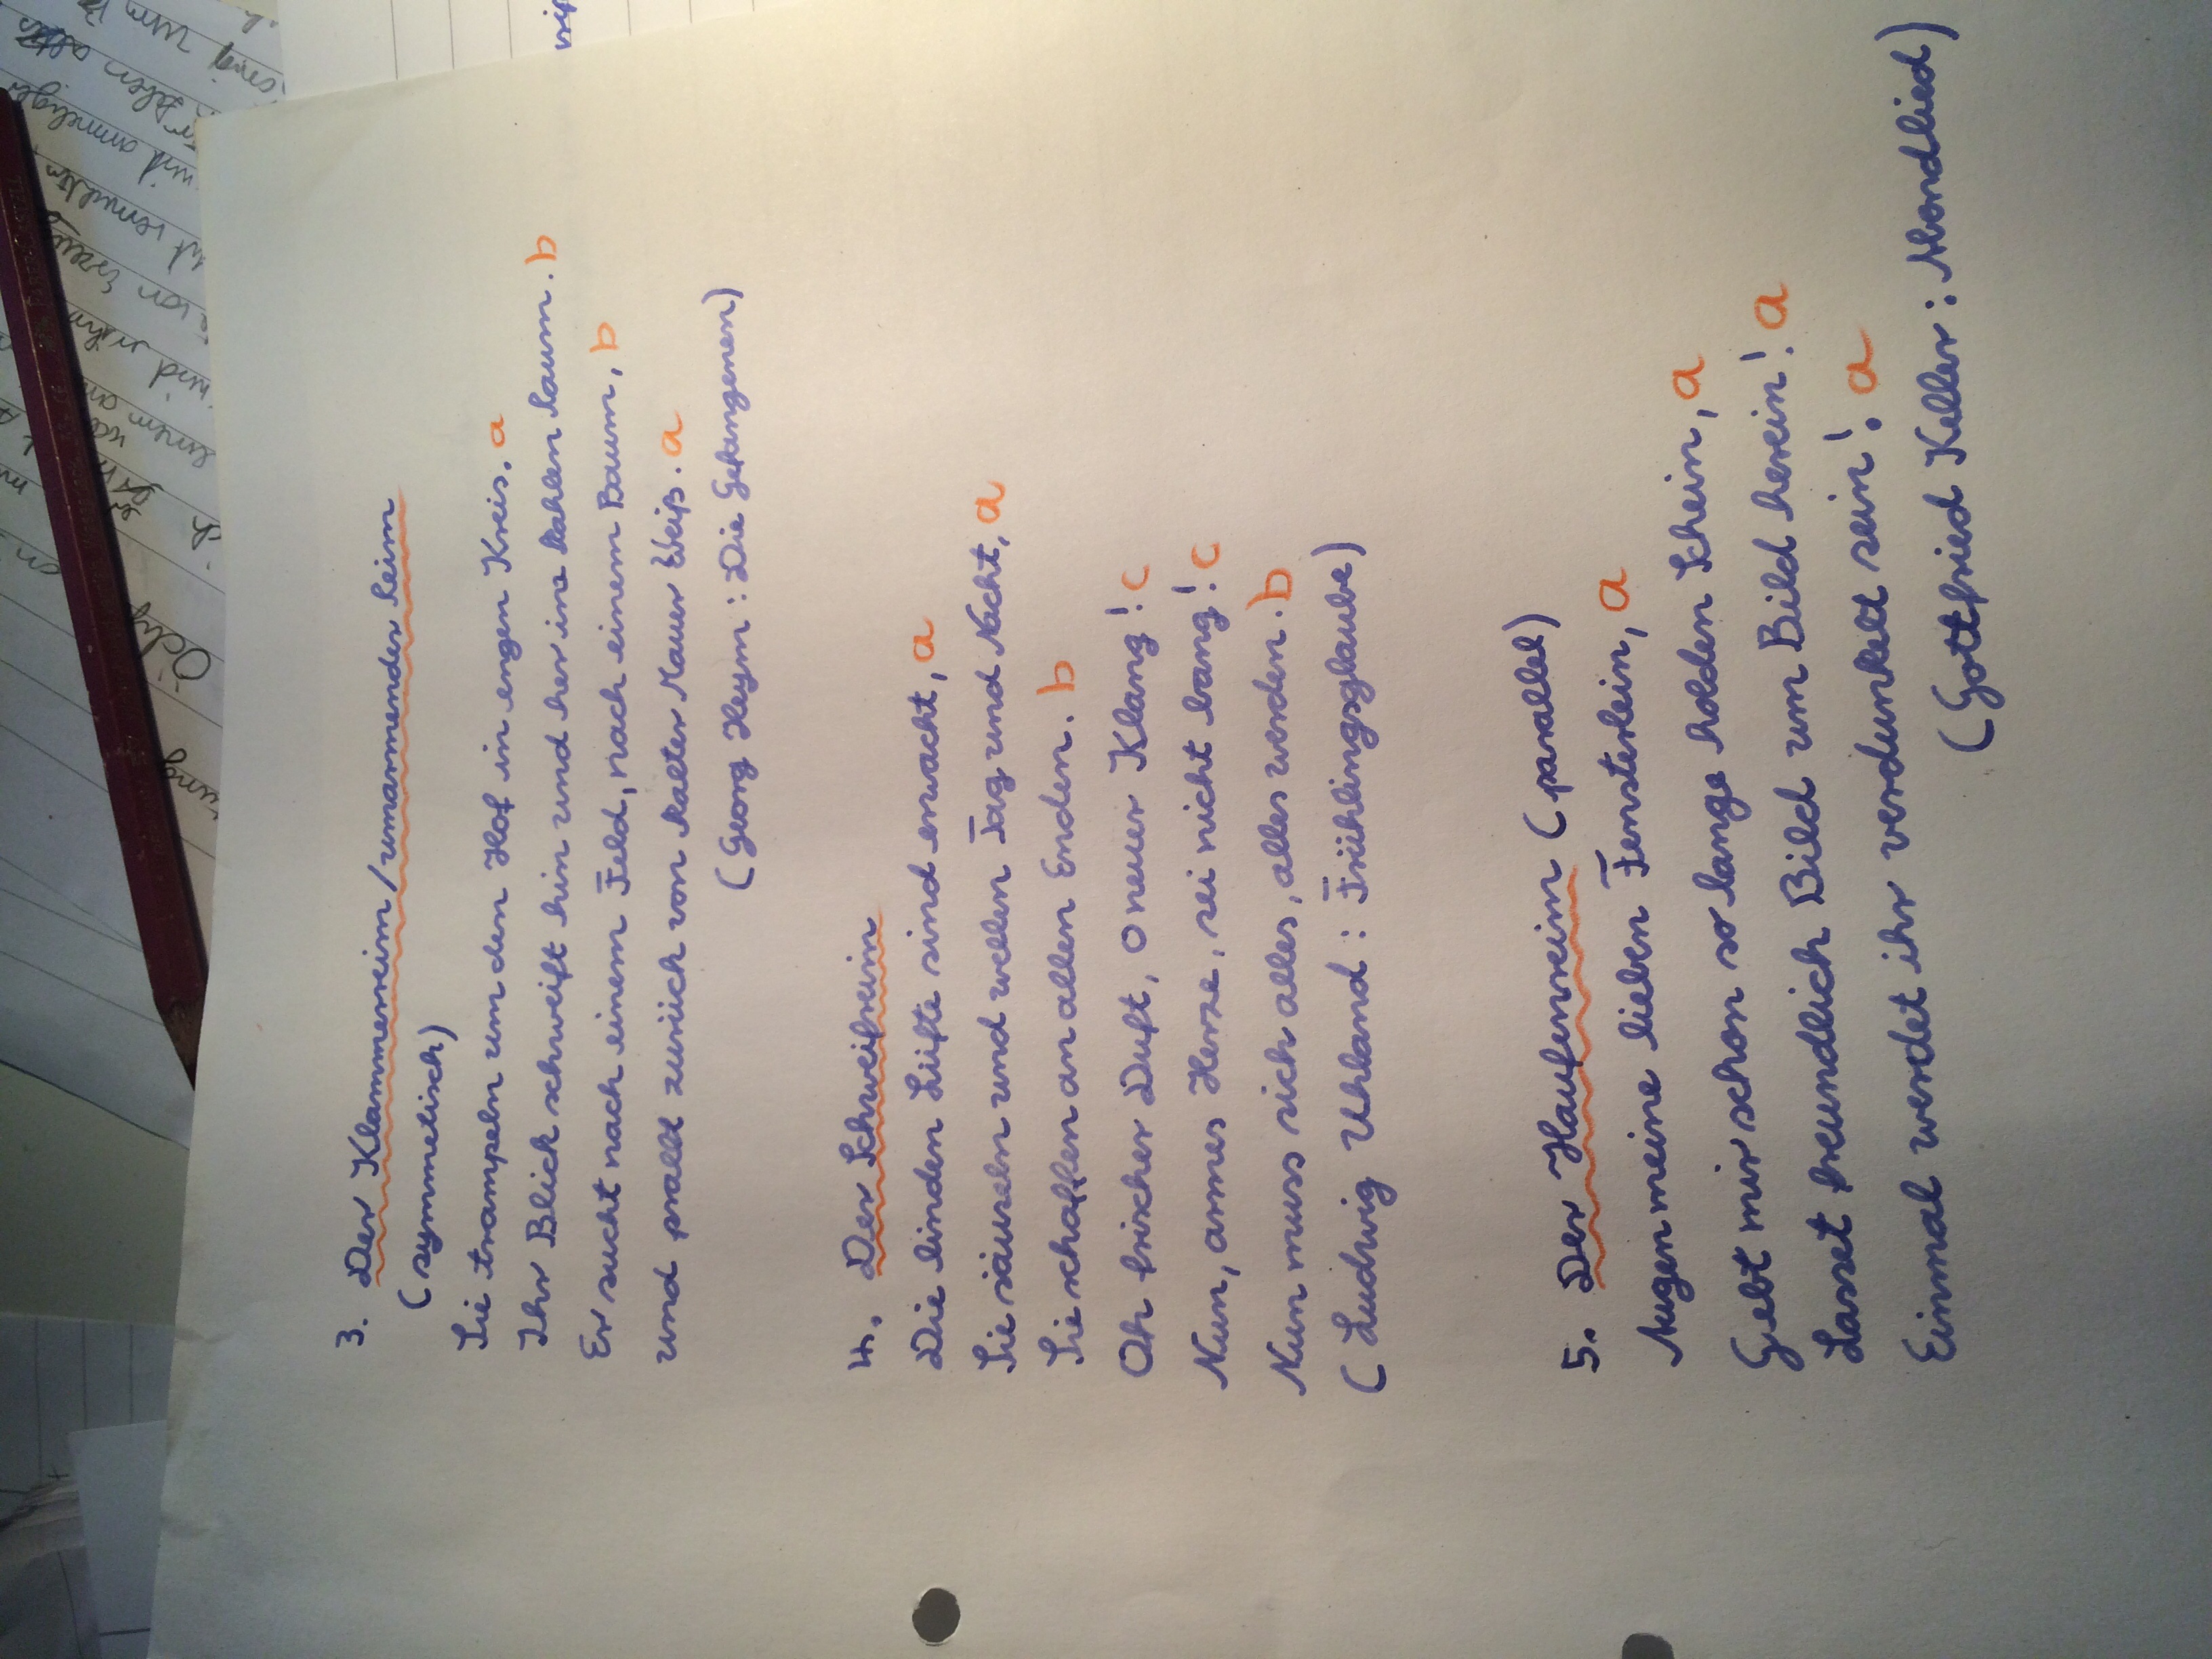 3. Der Klammerreim / umarmender Reim
(symmetisch)
Sie trampeln um den Hof in engen Kreis. a
Ihr Blick schweift hin und her in kahlen Raum. b
Er sucht nach einem Feld, nach einem Baum, b
und prallt zurück von kalter Mauer Weiß. a
(Georg Heym: Die Gefangenen)
4. Der Schweifreim
Die linden Lüfte sind erwacht, a
Sie säuseln und wellen Tag und Nacht, a
Sie schaffen an allen Enden. b
Oh frischer Duft, O neuer Klang! c
Nun, armes Herze, sei nicht bang! c
Nun muss sich alles, alles werden. b
(Ludwig Uhland: Frühlingsglaube)
5. Der Haufenreim (parallel)
Augen meine lieben Fensterlein, a
Gebt mir schon so lange holden Schein, a
Lasset freundlich Bild um Bild herein! a
Einmal werdet ihr verdunkelt sein! a
(Gottfried Keller: Abendlied)
Ödip